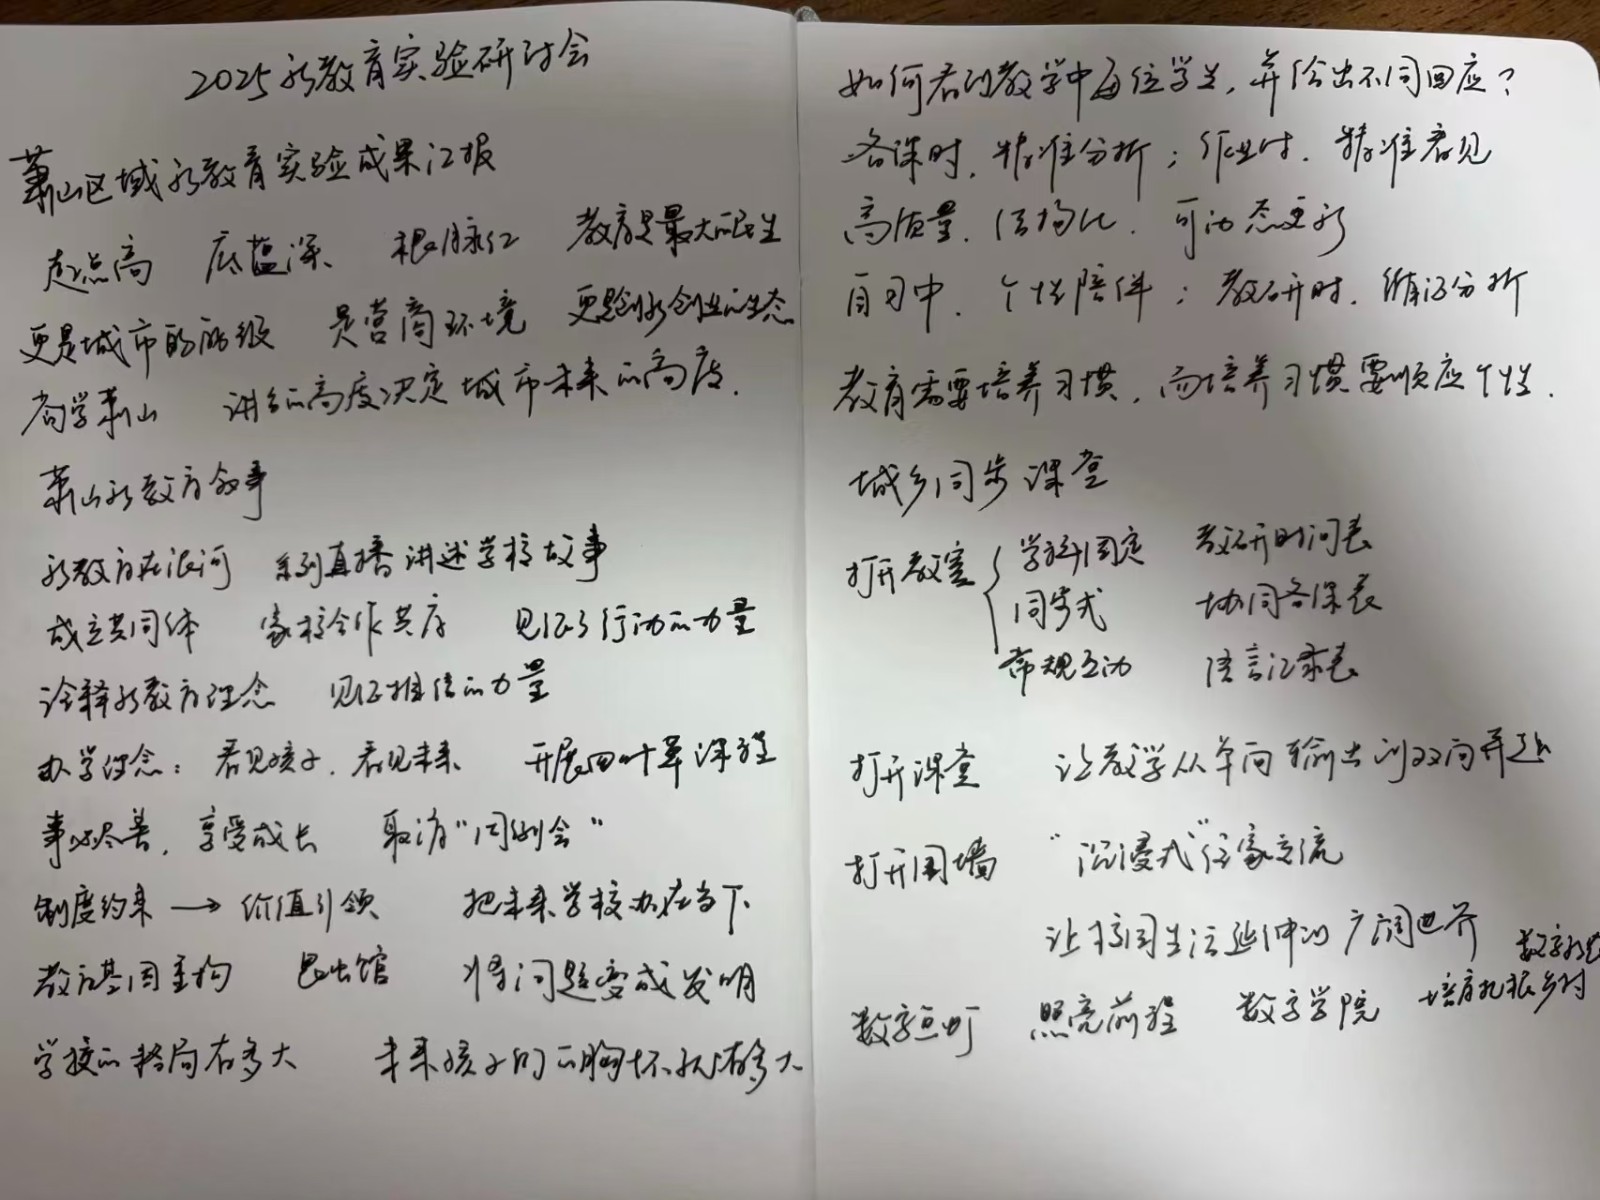 2025新教育实验研讨会
萧山区域新教育实验成果汇报
起点高 底蕴深 根脉红 教育是最大的民生
更是城市的能级 是营商环境 更是创新创业的生态
尚学萧山 讲台的高度决定城市未来的高度.
萧山新教育叙事
新教育在浪河 系列直播讲述学校故事
成立共同体 家校合作共育 见证了行动的力量
诠释新教育理念 见证相信的力量
办学理念：看见孩子，看见未来 开展四叶草课程
事必尽善，享受成长 取消“周例会”
制度约束 → 价值引领 把未来学校办在当下
教育基因重构 昆虫馆 将问题变成发明
学校的格局有多大 未来孩子们的胸怀就有多大
如何看到教学中每位学生，并给出不同回应？
备课时，精准分析；作业时，精准看见
高质量，结构化，可动态更新
自习中，个性陪伴；教研时，循证分析
教育需要培养习惯，而培养习惯要顺应个性.
城乡同步课堂
打开教室 学科固定 教研时间表
同步式 协同备课表
常规互动 语言记录表
打开课堂 让教学从单向输出到双向奔赴
打开围墙 “沉浸式”住家交流
让校园生活延伸到广阔世界
数字 照亮前程 数字学院 培育扎根乡村